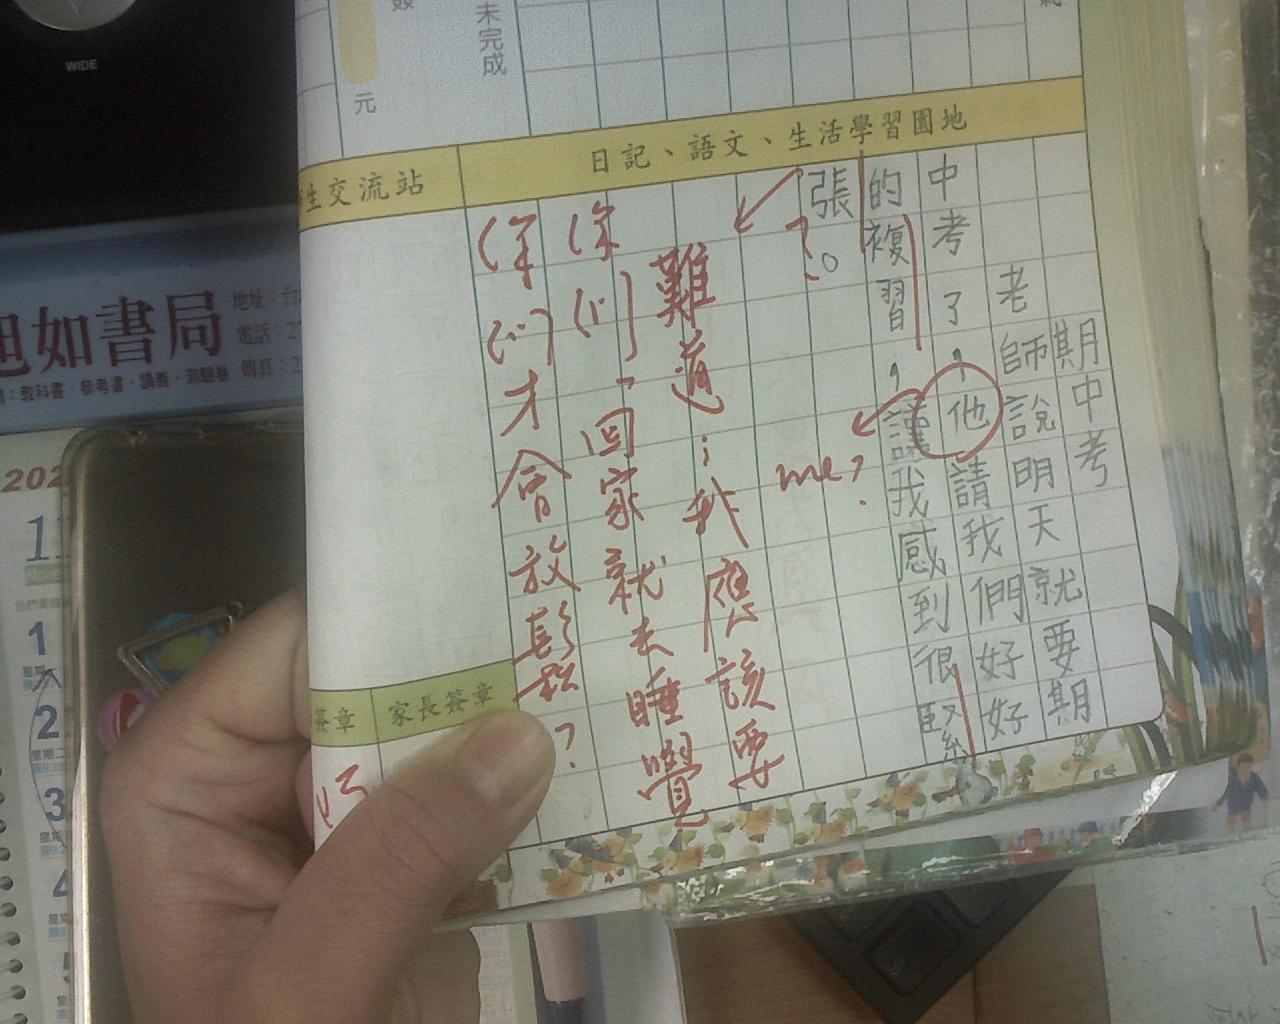 WIDE
未完成
元
日記、語文、生活學習園地
生交流站
期中考
老師說明天就要期
中考了，他請我們好好
的複習，讓我感到很緊
張。
me?
難道；我應該要
「回家就去睡覺
才會放鬆?
家長簽章
簽章
如書局
地址：台
電話：2
傳真：2
教科書．參考書．講義．測驗卷
202
11
1
2
星期二
3
4
5